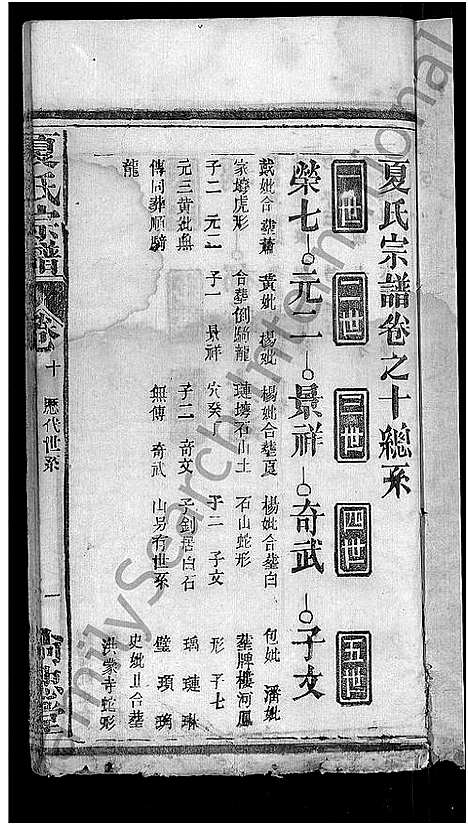 夏氏宗譜卷之十總系
一世 二世 三世 四世 五世
榮七 元二 景祥 奇武 子文
戴妣合葬蕭 黃妣 楊妣 楊妣合葬夏 楊妣合葬白 包妣 潘妣
家墩虎形 合葬倒騎龍 璉墩石山土 石山蛇形 葬牌樓河鳳
子二 元一 子一 景祥 穴癸 子二 子文 形 子七
元三黃妣無 子二 奇文 子釗居白石 瑀 璉 琳
傳同葬順騎 無傳 奇武 山另有世系 璧 頊 璃
龍 史妣
洪蒙寺蛇形
夏氏宗譜
卷十 歷代世系 一
FamilySearch International